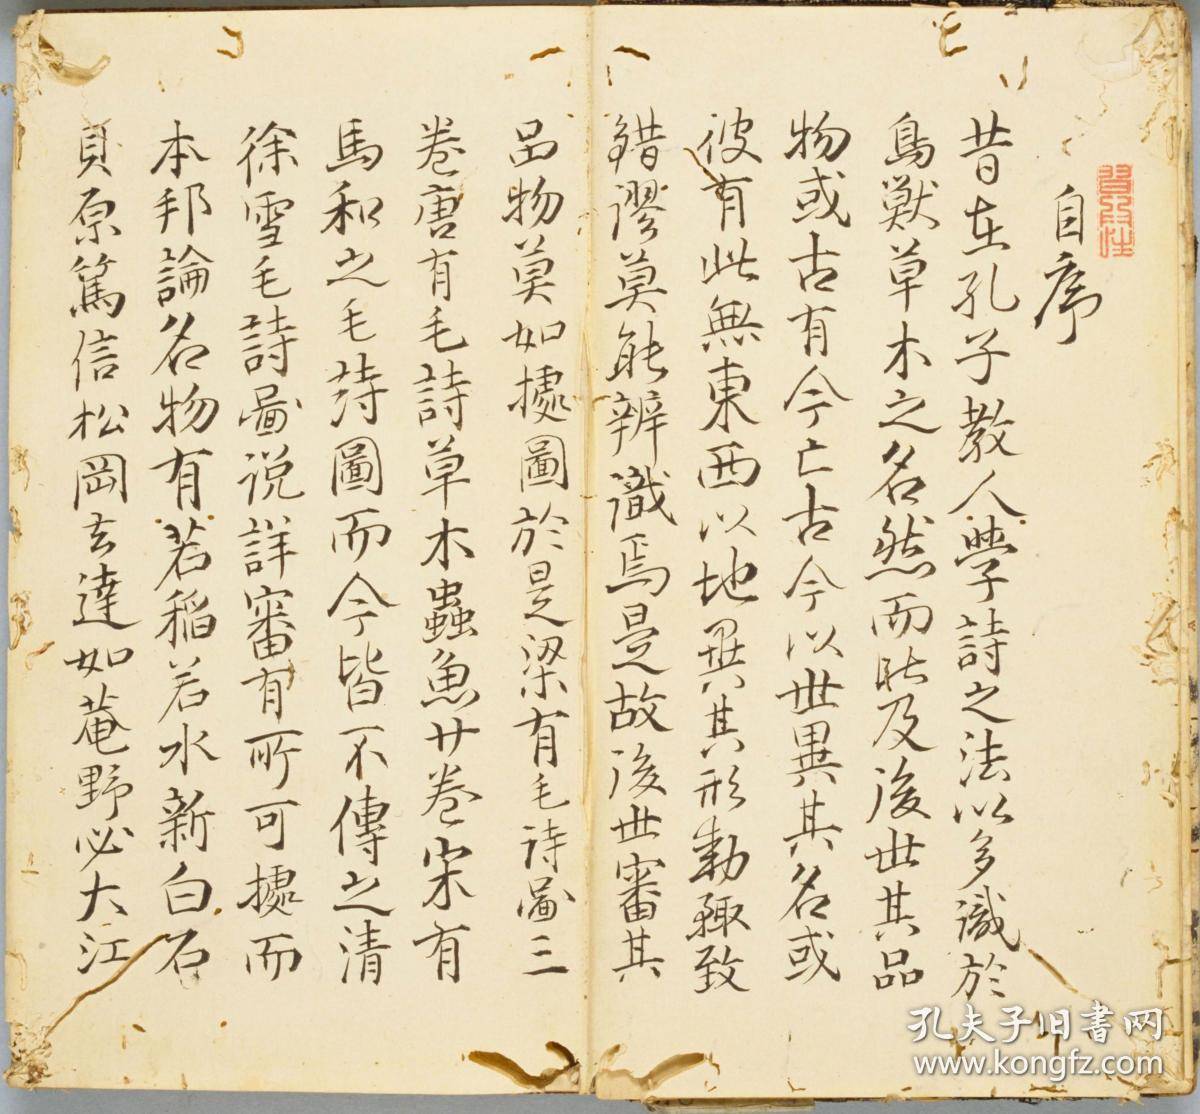 自序
昔在孔子教人學詩之法以多識於
鳥獸草木之名然而能及後世其品
物或古有今亡古今以世異其名或
彼有此無東西以地異其形動輙致
錯謬莫能辨識焉是故後世審其
品物莫如據圖於是梁有毛詩圖三
卷唐有毛詩草木蟲魚廿卷宋有
馬和之毛詩圖而今皆不傳之清
徐雪毛詩圖说詳審有所可據而
本邦論名物有若稲若水新白石
貝原篤信松岡玄達如菴野必大江
孔夫子旧書网
www.kongfz.com